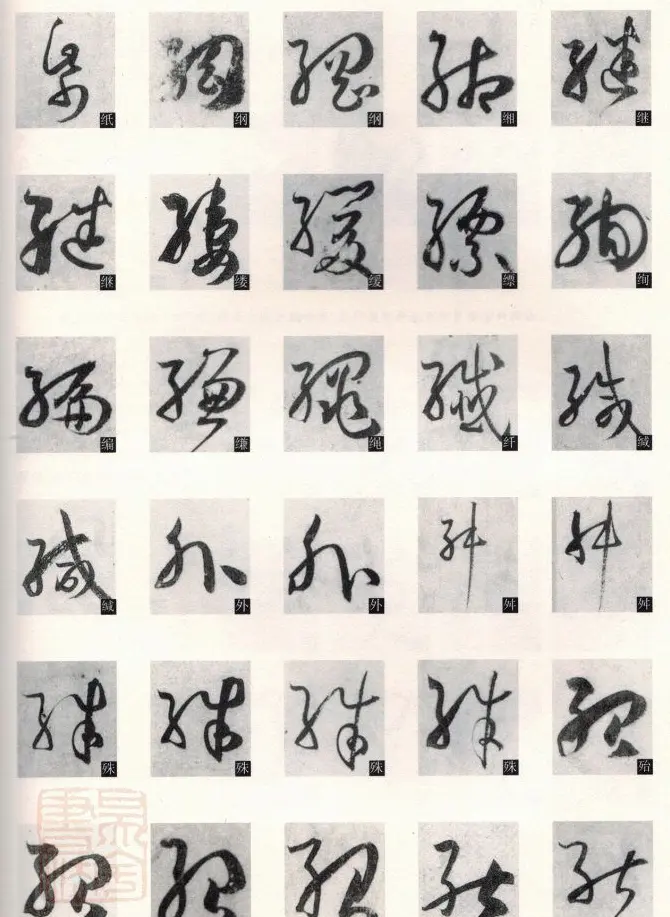 纸 纲 纲 缃 继
继 缕 缓 缥 绚
编 缣 绳 纤 缄
缄 外 外 舛 舛
殊 殊 殊 殊 殆